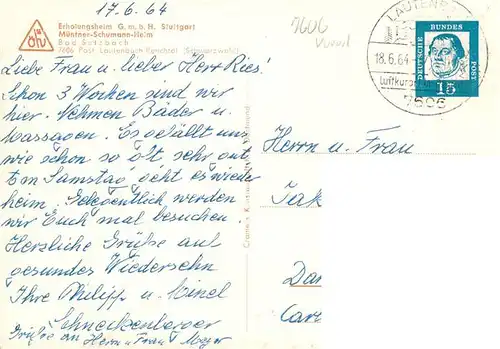 17.6.64
Erholungsheim G.m.b.H. Stuttgart
Müntner-Schumann-Heim
Bad Sulzbach
7606 Post Lautenbach Renchtal (Schwarzwald)
Liebe Frau u. lieber Herr Ries!
Schon 3 Wochen sind wir
hier. Nehmen Bäder u.
Massagen. Es gefällt uns
wie schon so oft, sehr gut.
Am Samstag geht es wieder
heim. Gelegentlich werden
wir Euch mal besuchen.
Herzliche Grüße auf
gesundes Wiedersehn
Ihre Philipp u.
Schneckenberger
Grüße an Herrn u. Frau Meyer
7606
LAUTENB
18.6.64
Luftkurort
7606
DEUTSCHE
BUNDES
POST
15
Herrn u. Frau
Jak
Dar
Car